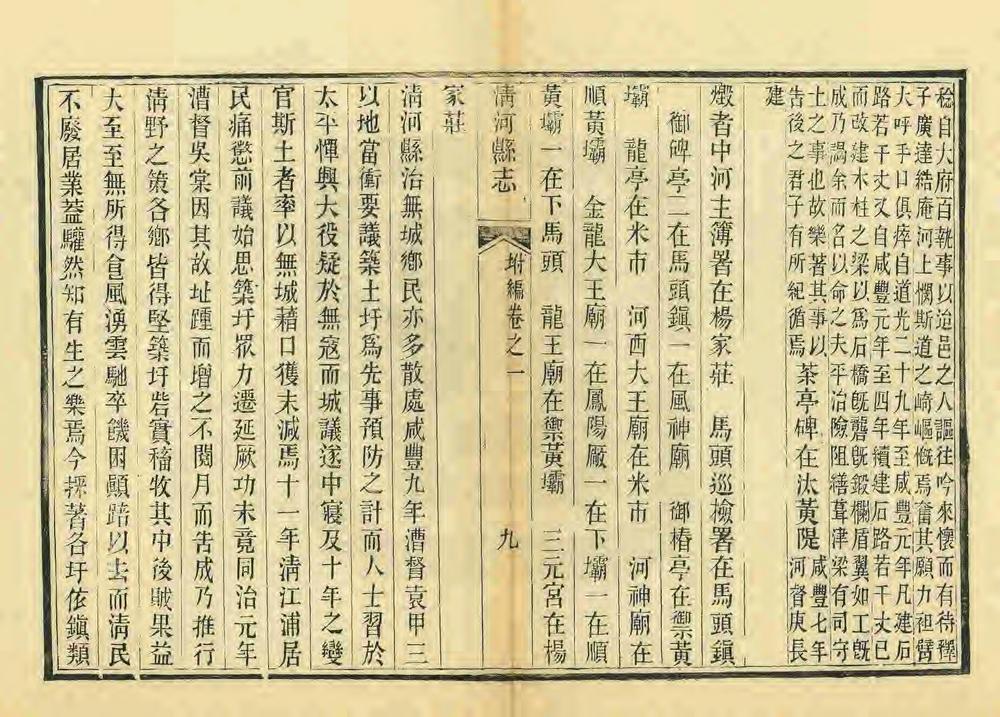 稔自大府百執事以迨邑之人謳往吟來懷而有待釋
子廣達緒庵河上憫斯道之崎嶇慨焉奮其願力袒臂
大呼手口俱瘁自道光二十九年至咸豐元年凡建石
路若干丈又自咸豐元年至四年續建石路若干丈已
而改建木柱之梁以爲石橋旣礱旣鍛欄盾翼如工旣
成乃謁余而名以命之夫平治險阻繕葺津梁有司守
土之事也故樂著其事以
告後之君子有所紀循焉 茶亭碑在汰黃隄 咸豐七年河督庚長
建
燬者中河主簿署在楊家莊 馬頭巡檢署在馬頭鎮
御碑亭二在馬頭鎮一在風神廟 御椿亭在禦黃
壩 龍亭在米市 河西大王廟在米市 河神廟在
順黃壩 金龍大王廟一在鳳陽厰一在下壩一在順
黃壩一在下馬頭 龍王廟在禦黃壩 三元宮在楊
清河縣志 坿編卷之一 九
家莊
清河縣治無城鄉民亦多散處咸豐九年漕督袁甲三
以地當衝要議築土圩爲先事預防之計而人士習於
太平憚興大役疑於無寇而城議遂中寢及十年之變
官斯土者率以無城藉口獲末減焉十一年清江浦居
民痛懲前議始思築圩眾力遷延厥功未竟同治元年
漕督吳棠因其故址踵而增之不閱月而告成乃推行
清野之策各鄉皆得堅築圩砦實穡牧其中後賊果益
大至至無所得食風湧雲馳卒饑困顚踣以去而清民
不廢居業葢驩然知有生之樂焉今採著各圩依鎮類